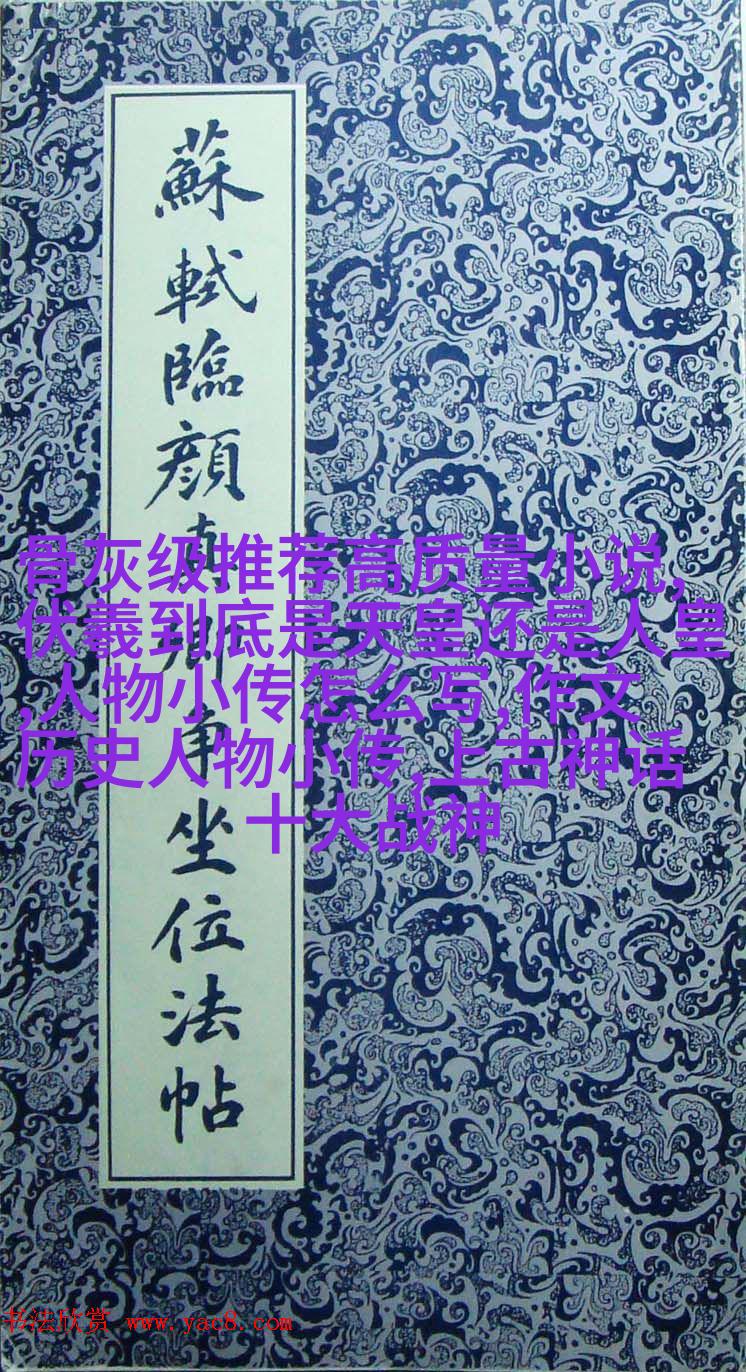 蘇軾臨顏真卿争坐位法帖
骨灰级推荐高质量小说,
伏羲到底是天皇还是人皇
,人物小传怎么写,作文
历史人物小传,上古神话
十大战神
书法欣赏 www.yac8.com